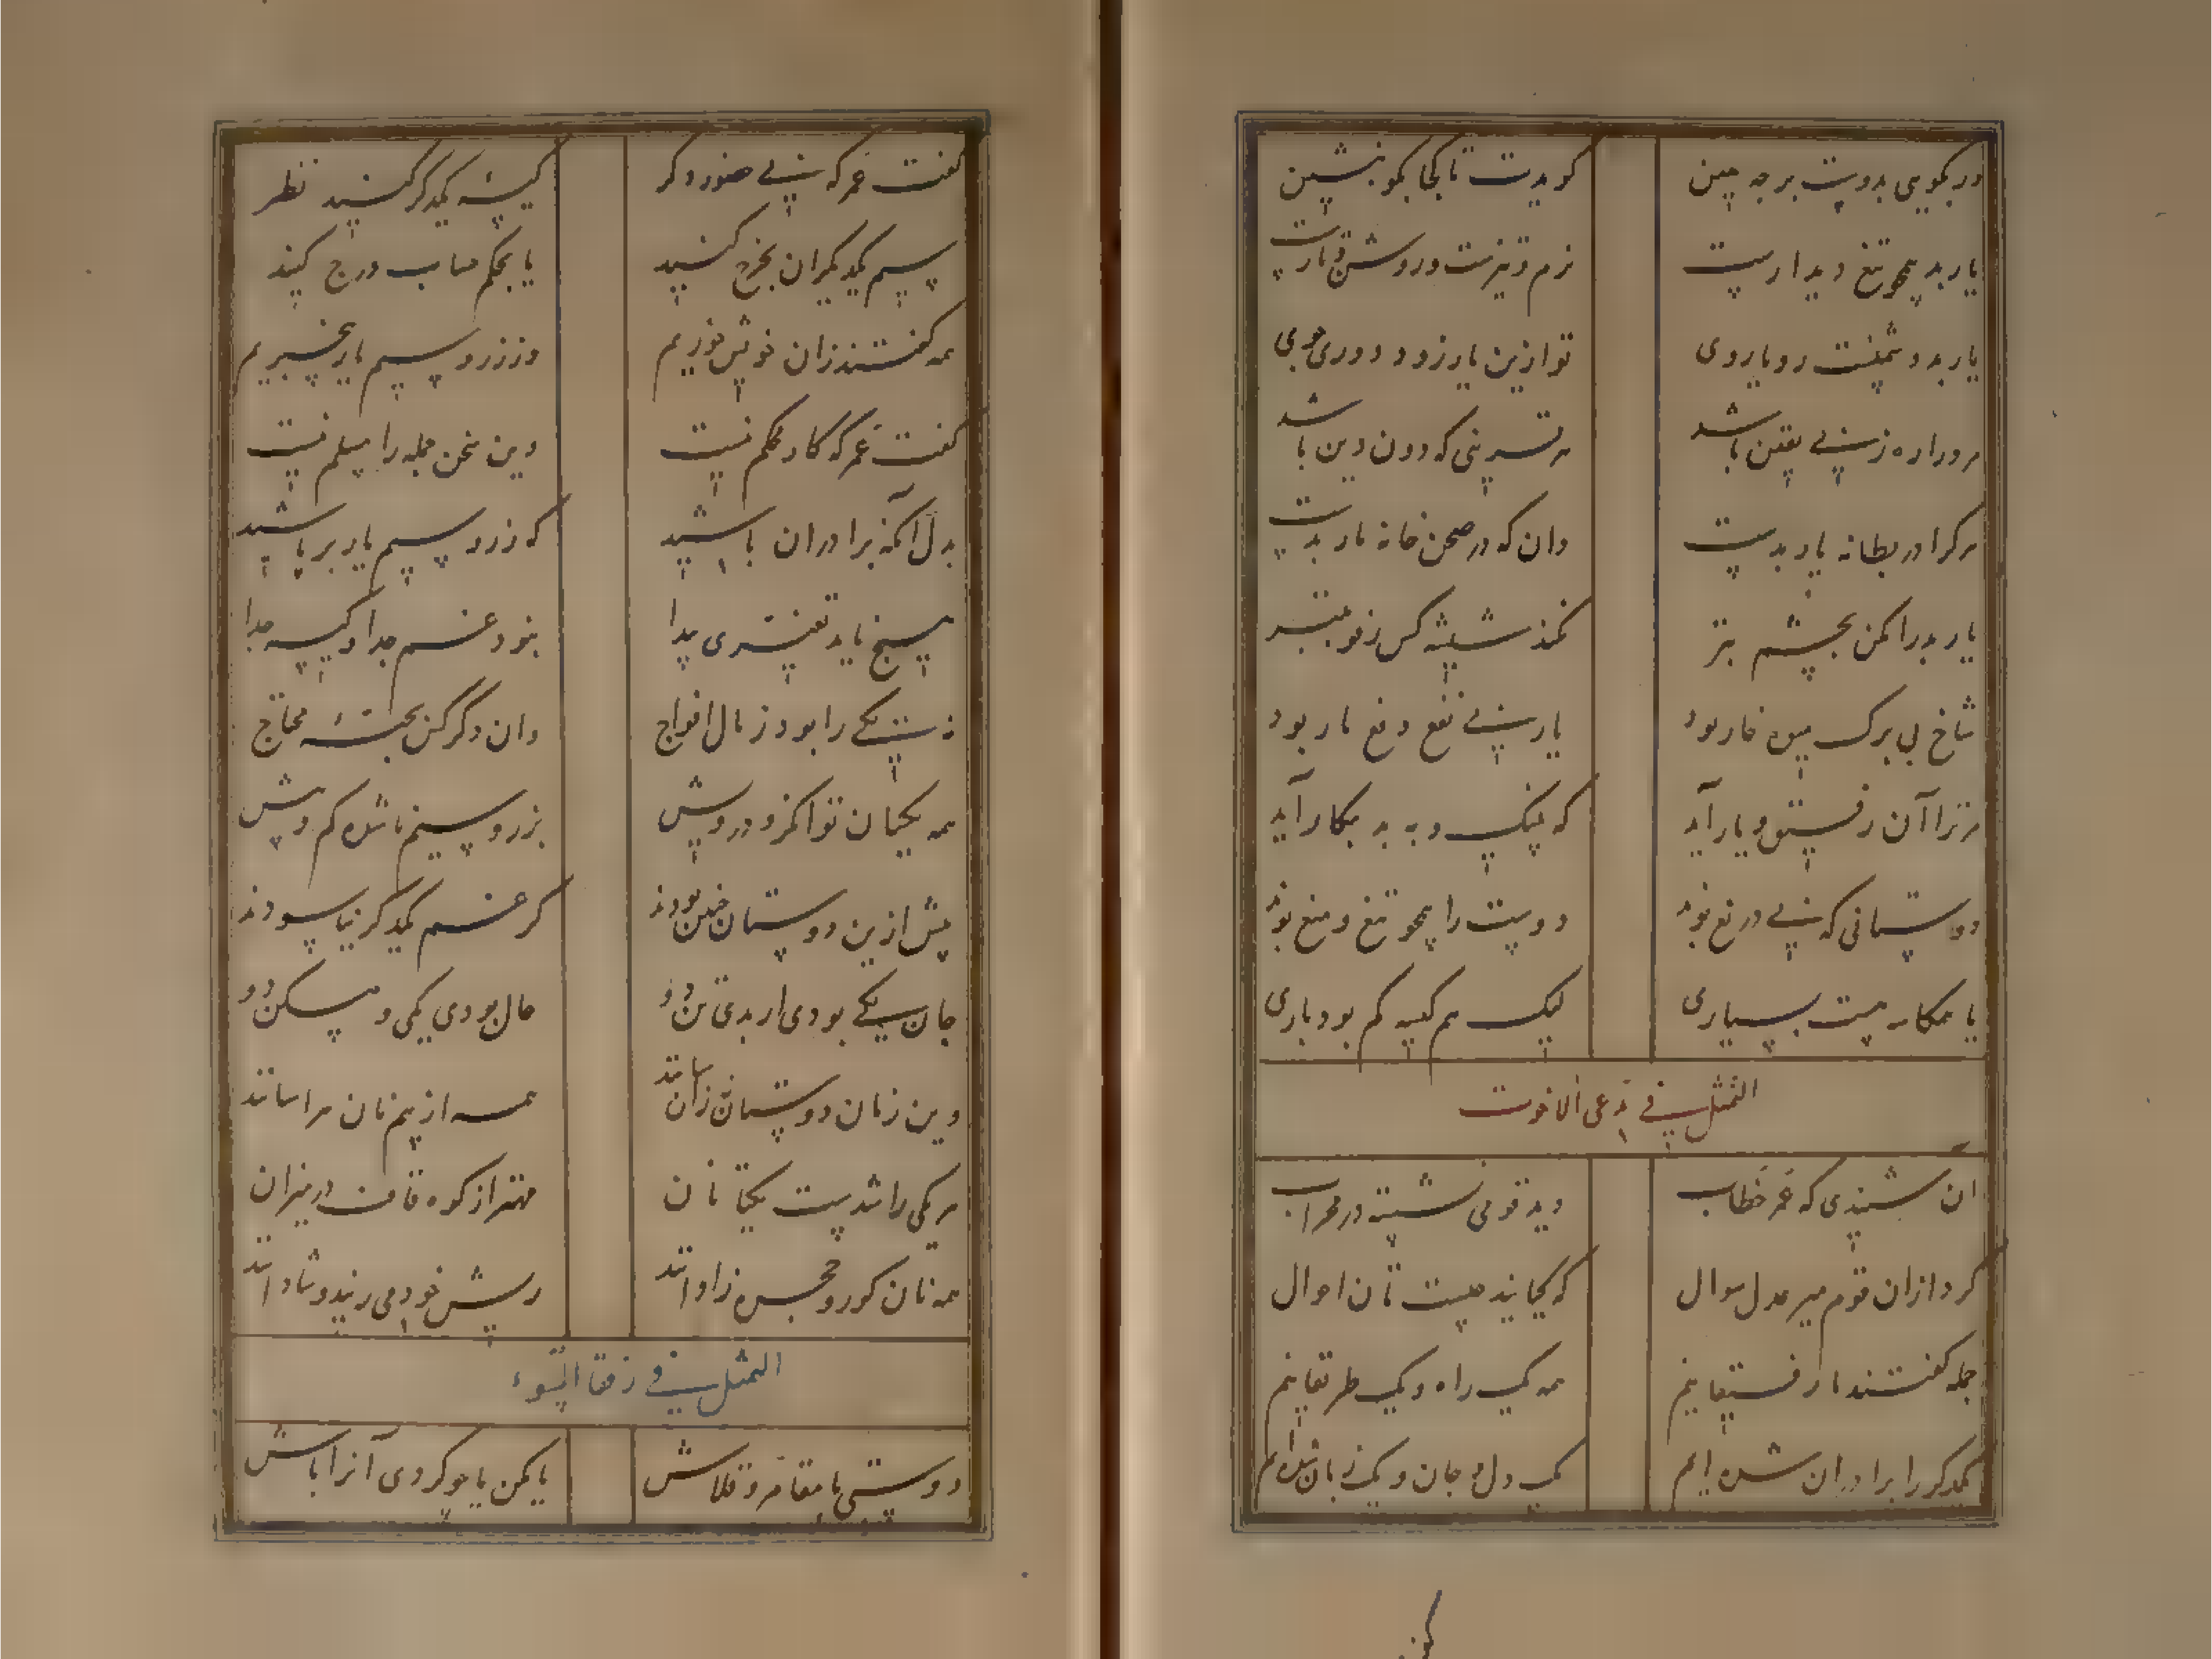 ور بگویی بدوست برجه هین گویدت تا کجا بگو بنشین
یار بد همچو تیغ دیدارست نرم و تیزست و روشن و تارست
یار بد دشمنست رویاروی تو ازین یار زود دوری جوی
مرد را ره ز بی یقین باشد هر قرینی که دون دین باشد
هر کرا در بطانه یار بدست دان که در صحن خانه مار بدست
یار بد را مکن بچشم بتر کند شیشه کس رفو بتبر
شاخ بی برگ میوه خار بود یار بی نفع دفع مار بود
مر ترا آن رفیق و یار آید که بنیک و به بد بکار آید
دوستانی که بی دریغ بوند دوست را همچو تیغ و میغ بوند
یار همکاسه هست بسیاری لیک هم کیسه کم بود باری
التمثل فی مدعی الاخوت
آن شنیدی که عمر خطاب دید قومی نشسته در محراب
کرد ازان قوم میر عدل سوال که کجایید چیست تان احوال
جمله گفتند ما رفیقانیم همه یک راه و یک طریقانیم
یکدگر را برادران شده ایم یک دل و جان و یک زبان شده ایم
گفت عمر که بی حضور دگر کیسه یکدگر کنید نظر
سیم یکدیگران بخرج کنید یا بحکم حساب درج کنید
همه گفتند زان خویش خوریم وز زر و سیم یار بیخبریم
گفت عمر که کار محکم نیست وین سخن جمله را مسلم نیست
بدل آنگه برادران باشید که ز زر و سیم یار برپاشید
هیچ ناید تغیری پیدا نبود غم جدا و کیسه جدا
نه یکی را بود ز مال افواج وان دگر کس بحبه محتاج
همه یکسان توانگر و درویش بزر و سیم ناشده کم و بیش
پیش ازین دوستان چنین بودند کز غم یکدگر نیاسودند
جان یکی بودی ار بدی تن دو حال بودی یکی و مسکن دو
وین زمان دوستان زان سانند همه از بیم نان هراسانند
هر یکی راشدست یکتا نان مهتر از کوه قاف در میزان
همه نان کور و حجره زاده اند ریش خود می ریند و شاداند
التمثل فی رفقا السوء
دوستی با مقامر و قلاش یا مکن یا چو کردی آنرا باش